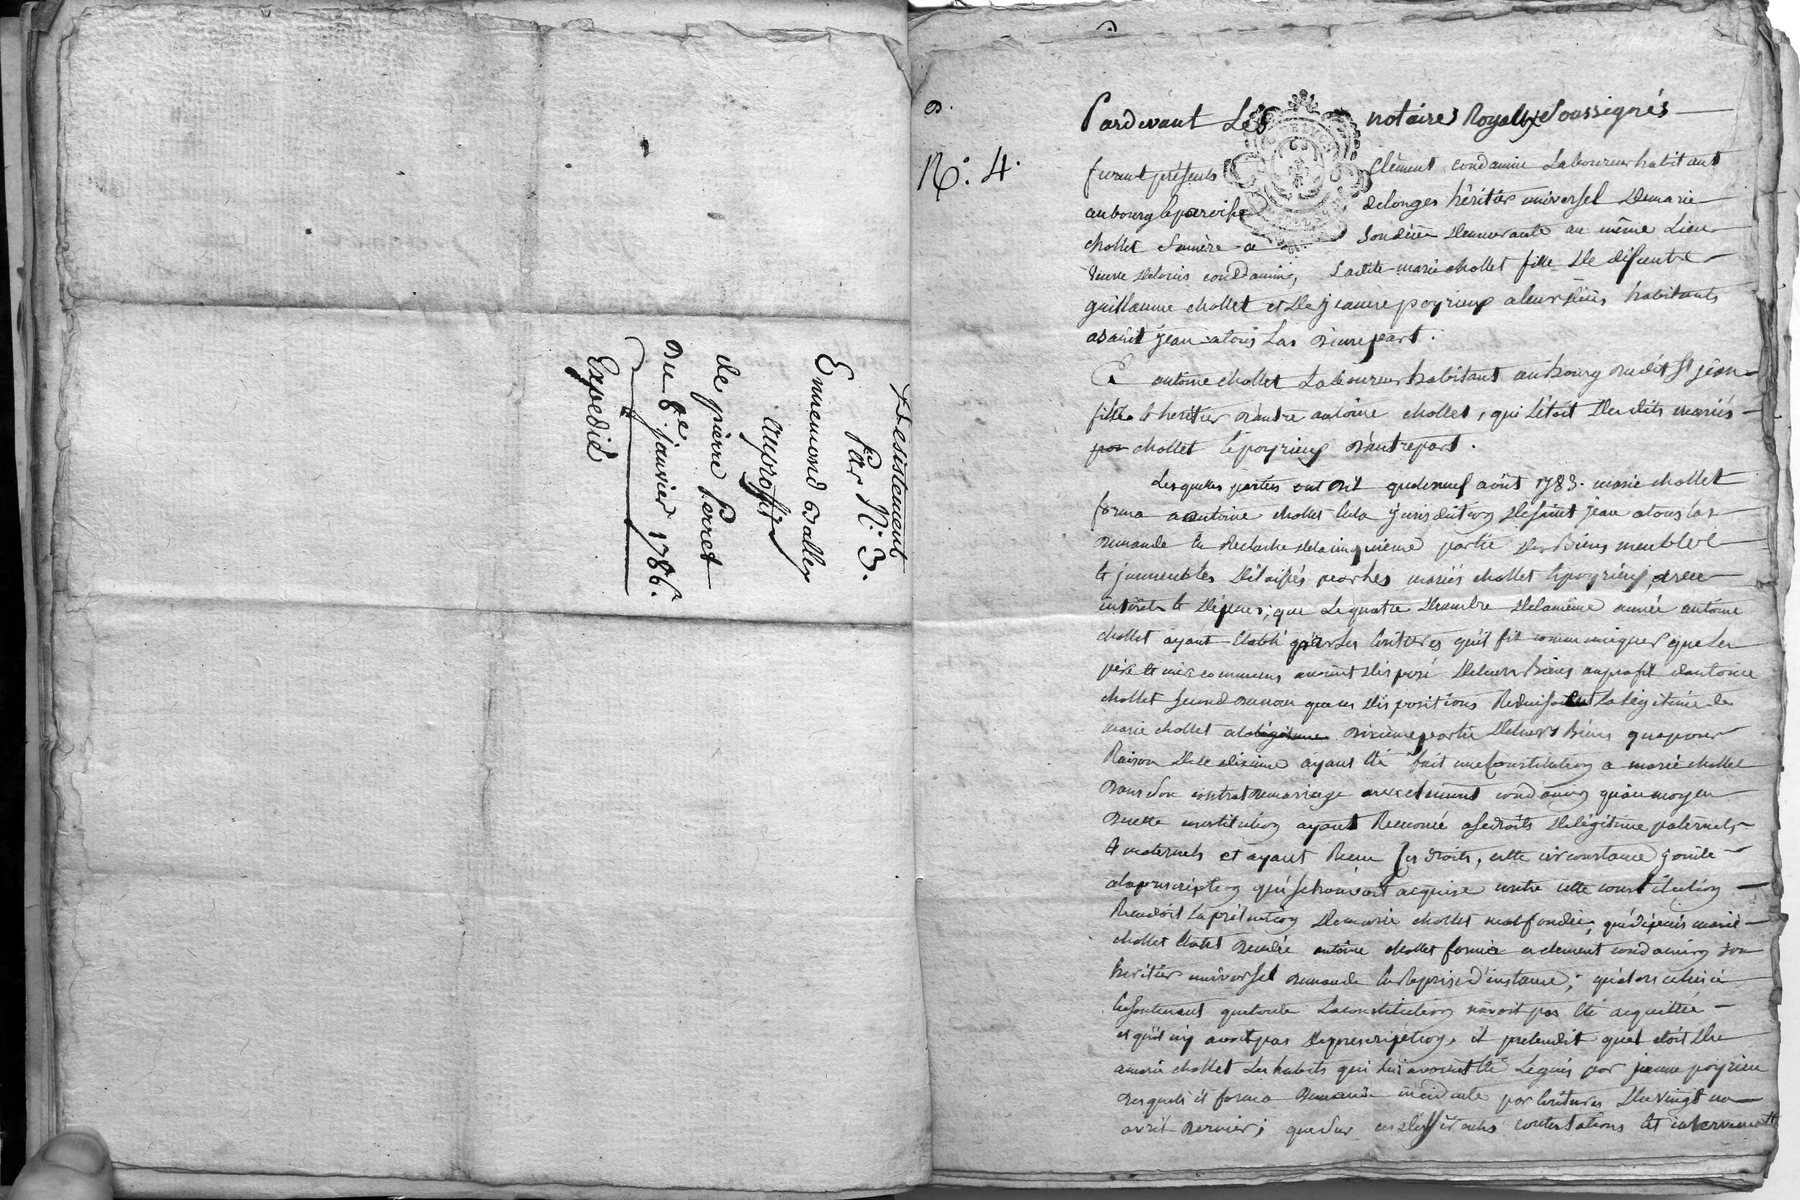 Desistement
Par N.º 3.
Ennemond Dallex
au proffit
de pierre Perret
Du 6.e janvier 1786.
Expedié
N.º 4.
Pardevant Les notaires Royaux Soussignés
furent présents Clément condamin Laboureur habitant
au bourg & paroisse de longes héritier universel De marie
chollet Sa mère a Son décès Demeurante au même Lieu
veuve De louis condamin, Ladite marie chollet fille De défunts
guillaume chollet et De jeanne poyrieux a leur décès habitants
a Saint jean a tous las D'une part.
Et antoine chollet Laboureur habitant au Bourg Dudit St jean
fils & heritier D'autre antoine chollet, qui L'étoit Desdits mariés
chollet & poyrieux D'autre part.
Lesquelles parties ont Dit que le neuf août 1783. marie chollet
forma a antoine chollet en la jurisdiction De Saint jean a tous las
Demande en Relache De la cinquième partie Des Biens meubles
& immeubles Délaissés par les mariés chollet & poyrieux, avec
intérêts & Dépens; que Le quatre De la même année antoine
chollet ayant établi par les écritures qu'il fit communiquer que les
père & mère communs avoient Disposé De leurs Biens au profit d'antoine
chollet Second que ces Dispositions Reduisoient La légitime de
marie chollet a la Dixieme partie De leurs Biens que pour
Raison De ce dixième ayant été fait une Constitution a marie chollet
Dans Son contrat De mariage avec condamin qu'au moyen
De cette constitution ayant Renoncé a Ses droits De légitime paternels
& maternels et ayant Recu Ses droits, cette circonstance jointe
a la prescription qui Se trouvoit acquise contre cette constitution
Rendoit La prétention De marie chollet mal fondée; que Depuis marie
chollet étant Decedée antoine chollet forma a clement condamin Son
heritier universel Demande en Reprise D'instance; qu'alors celui ci
en Soutenant que toute La constitution n'avoit pas été acquittée
et qu'il n'y avoit pas De prescription, il pretendit qu'il étoit Du
a marie chollet Les habits qui lui avoient été Legués par jeanne poyrieux
Desquels il forma Demande incidente par écritures Du vingt un
avril Dernier; que Sur ces Differentes contestations est intervenue